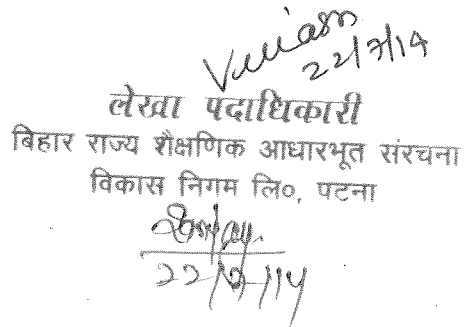 22/7/14
लेखा पदाधिकारी
बिहार राज्य शैक्षणिक आधारभूत संरचना
विकास निगम लि०, पटना
22/7/14